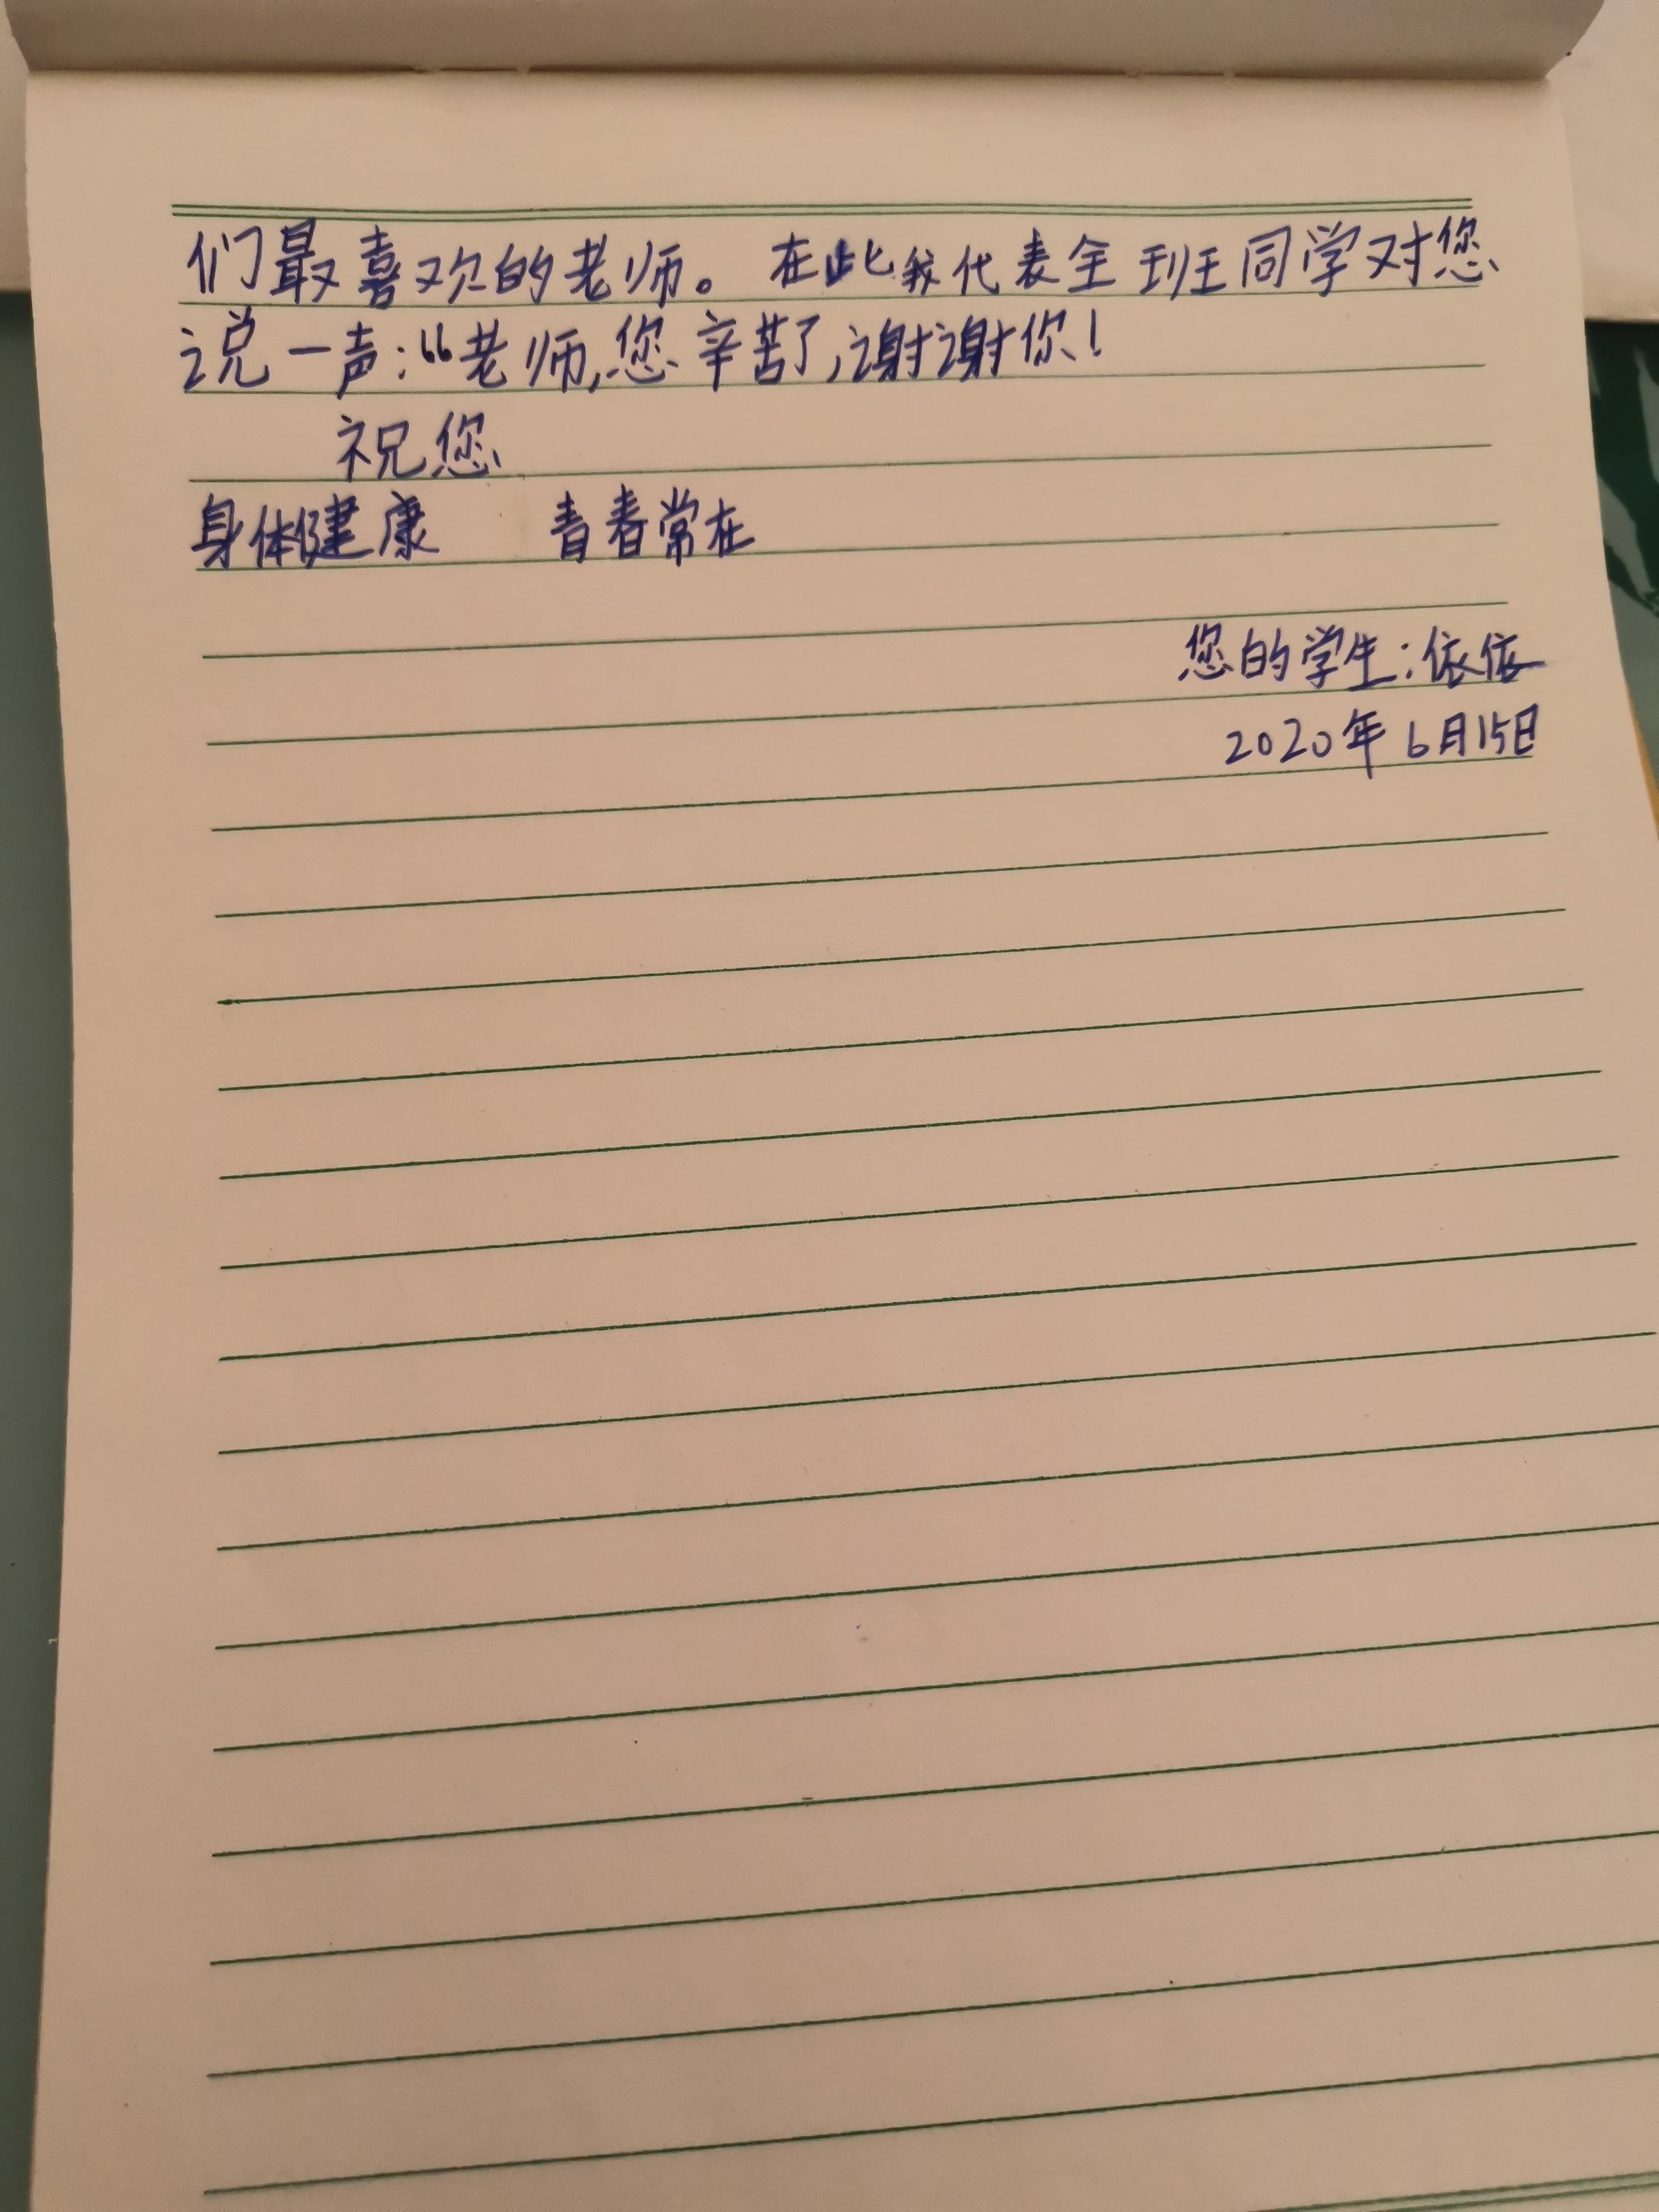 们最喜欢的老师。在此我代表全班同学对您
说一声:“老师,您辛苦了,谢谢你!
祝您
身体健康 青春常在
您的学生:依依
2020年6月15日